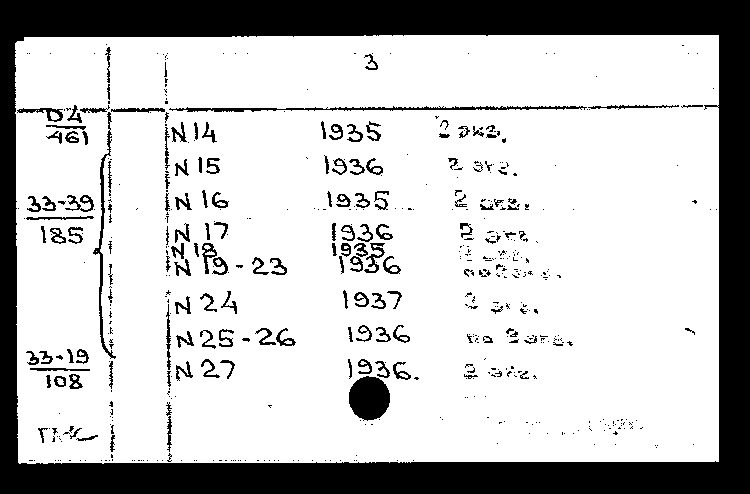 3
D4
461
N 14 1935 2 экз.
N 15 1936 2 экз.
33-39
185
N 16 1935 2 экз.
N 17 1936 2 экз.
N 18 1935 2 экз.
N 19-23 1936 по 2 экз.
N 24 1937 2 экз.
N 25-26 1936 по 2 экз.
33-19
108
N 27 1936. 2 экз.